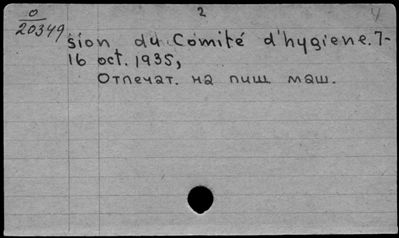 2
4
0
20349
sion du Comité d'hygiene. 7-
16 oct. 1935,
Отпечат. на пиш. маш.